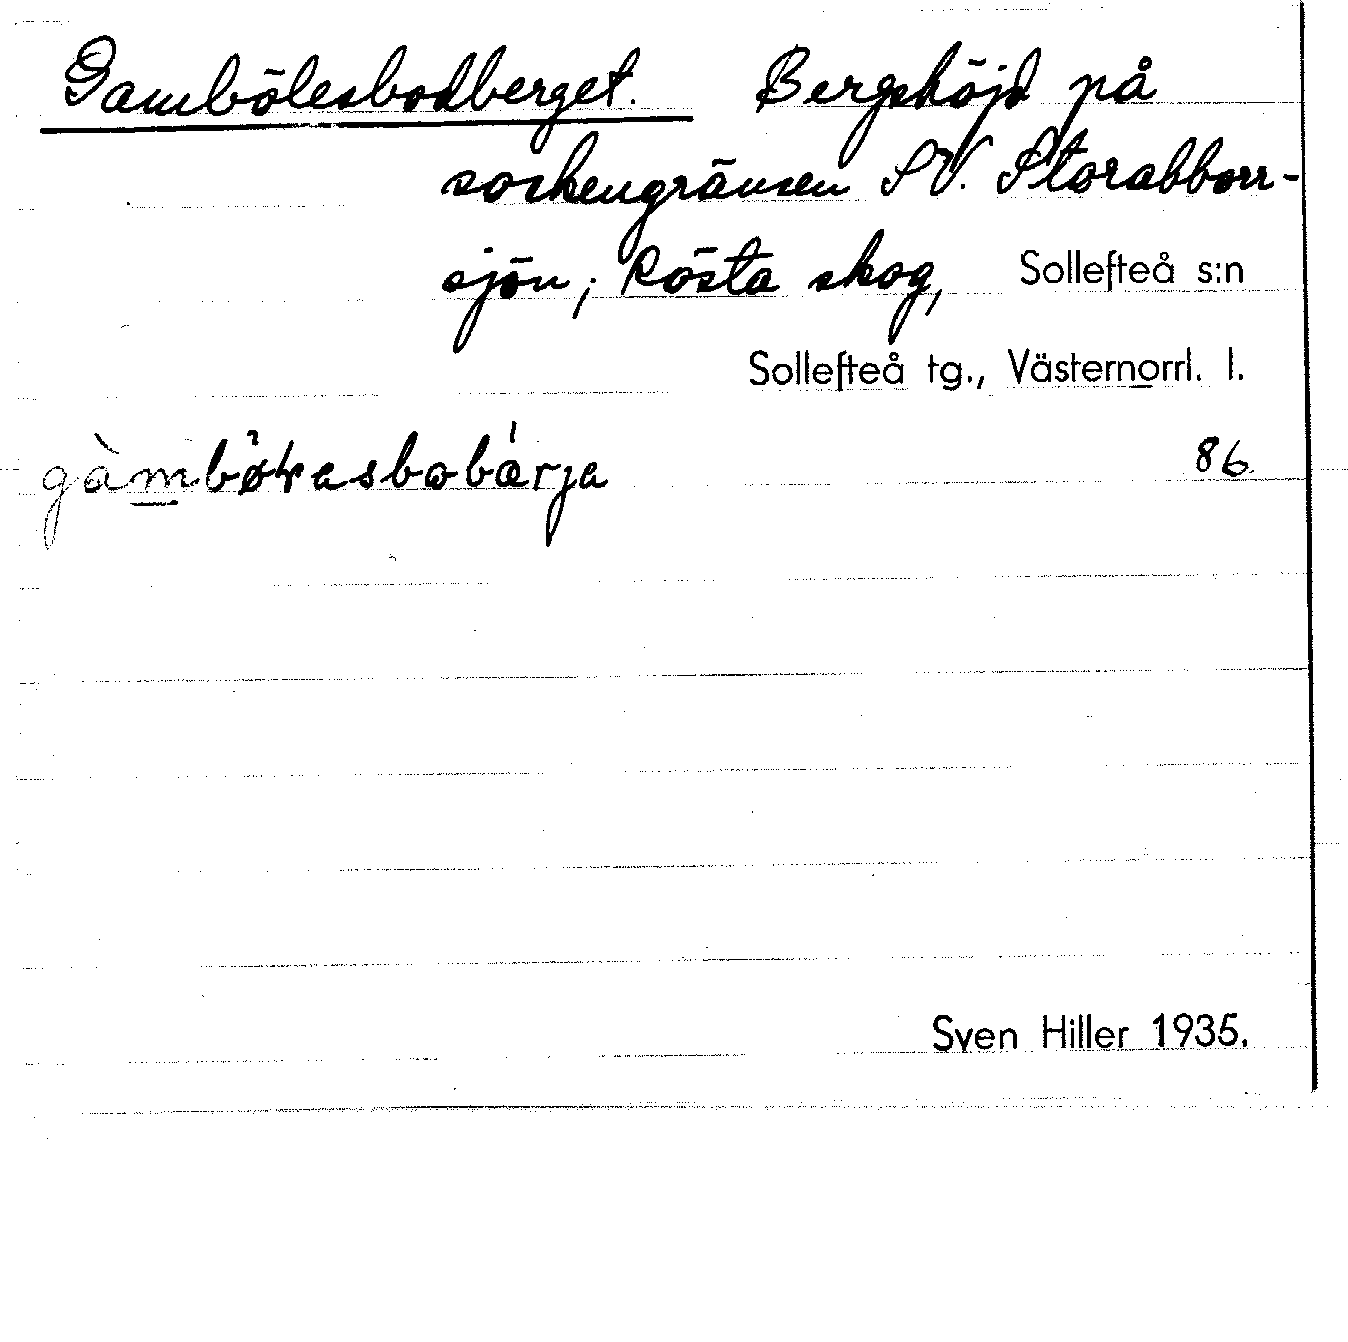 Gambölesbodberget. Bergshöjd på
sockengränsen SV. Storabborr-
sjön; Rösta skog, Sollefteå s:n
Sollefteå tg., Västernorrl. l.
86
Sven Hiller 1935.